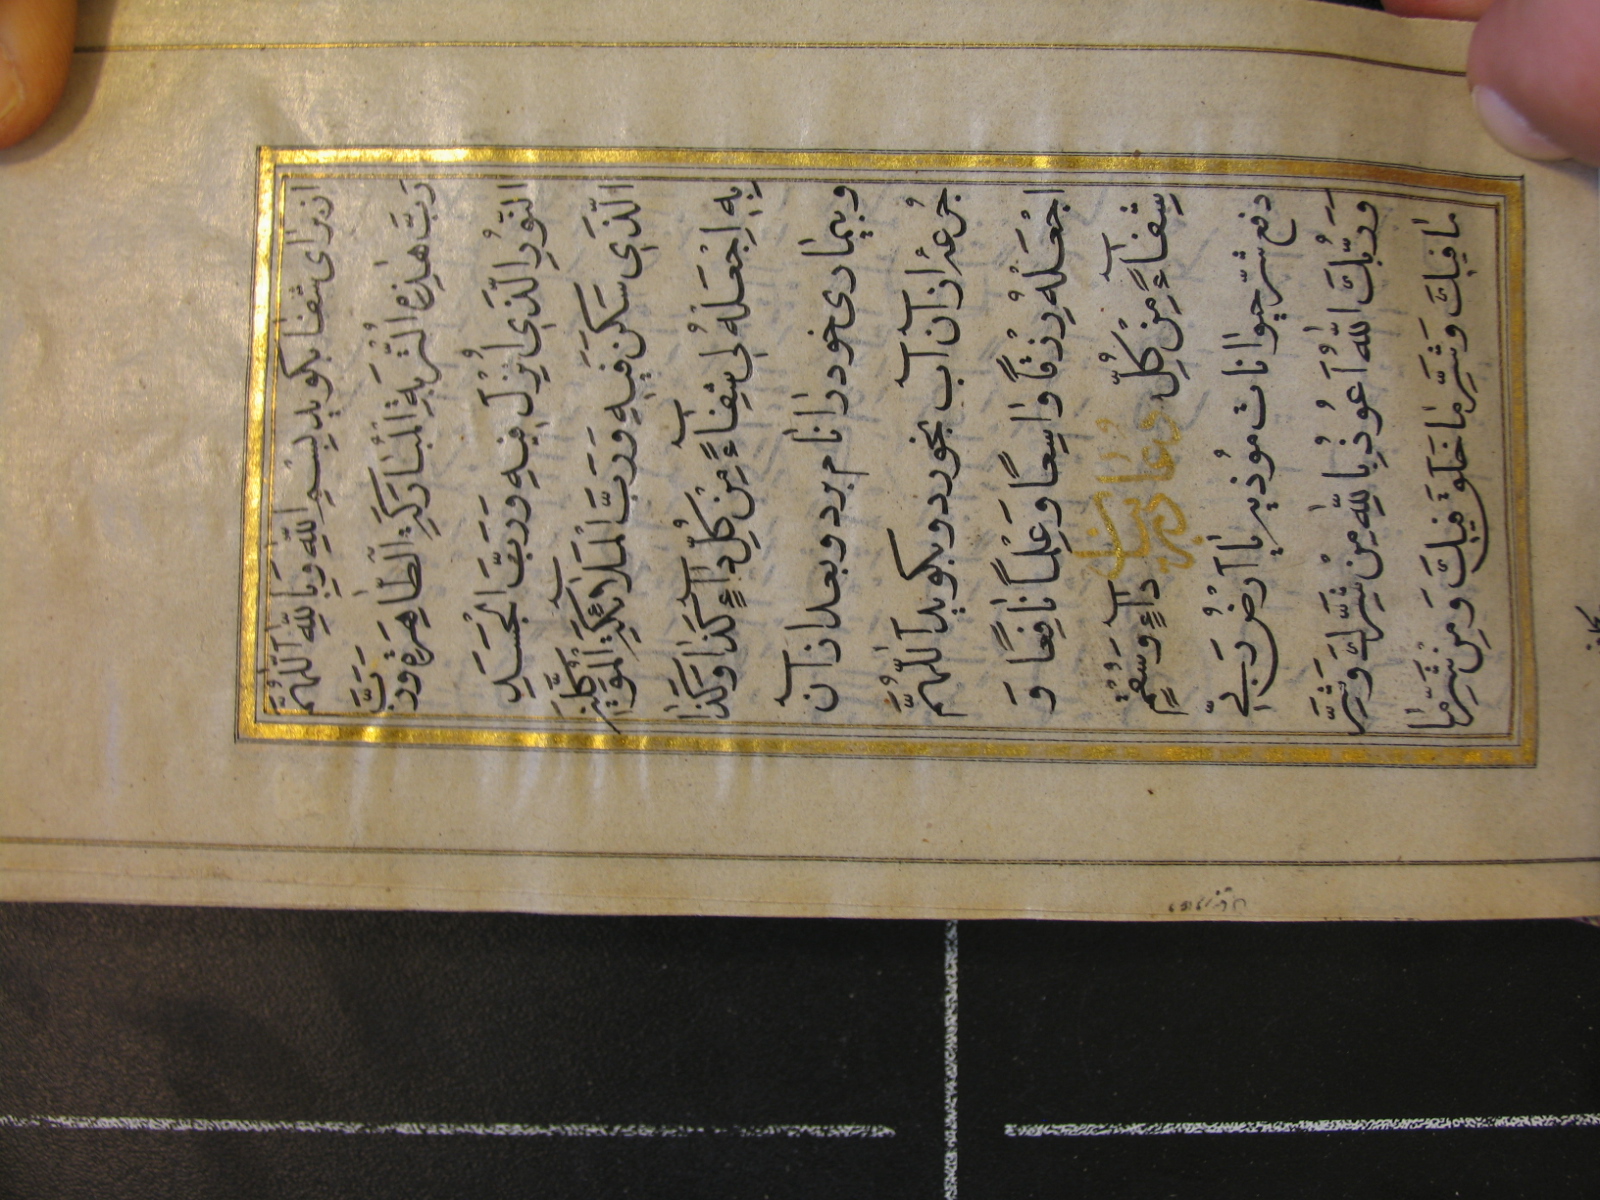 از برای شفا بکوید بِسْمِ اللّٰهِ وَبِاللّٰهِ اَللّٰهُمَّ
رَبَّ هٰذِهِ التُّرْبَةِ الْمُبَارَكَةِ الطَّاهِرَةِ وَرَبَّ
النُّورِ الَّذِی اُنْزِلَ فِیهِ وَرَبَّ الْجَسَدِ
الَّذِی سَكَنَ فِیهِ وَرَبَّ الْمَلَآئِكَةِ الْمُوَكَّلِینَ
بِهِ اِجْعَلْهُ لِی شِفَآءً مِنْ كُلِّ دَآءٍ كَذَا وَكَذَا
و بیماری خود را نام برد و بعد از آن
جُرعۀ از آن آب بخورد و بکوید اَللّٰهُمَّ
اجْعَلْهُ رِزْقًا وَاسِعًا وَعِلْمًا نَافِعًا وَ
شِفَآءً مِنْ كُلِّ دَآءٍ وَسُقْمٍ
دفع شرّ حیوانات موُذیه یَا اَرْضُ رَبِّی
وَرَبُّكِ اللّٰهُ اَعُوذُ بِاللّٰهِ مِنْ شَرِّكِ وَشَرِّ
مَا فِیكِ وَشَرِّ مَا خَلَقَ فِیكِ وَمِنْ شَرِّ مَا